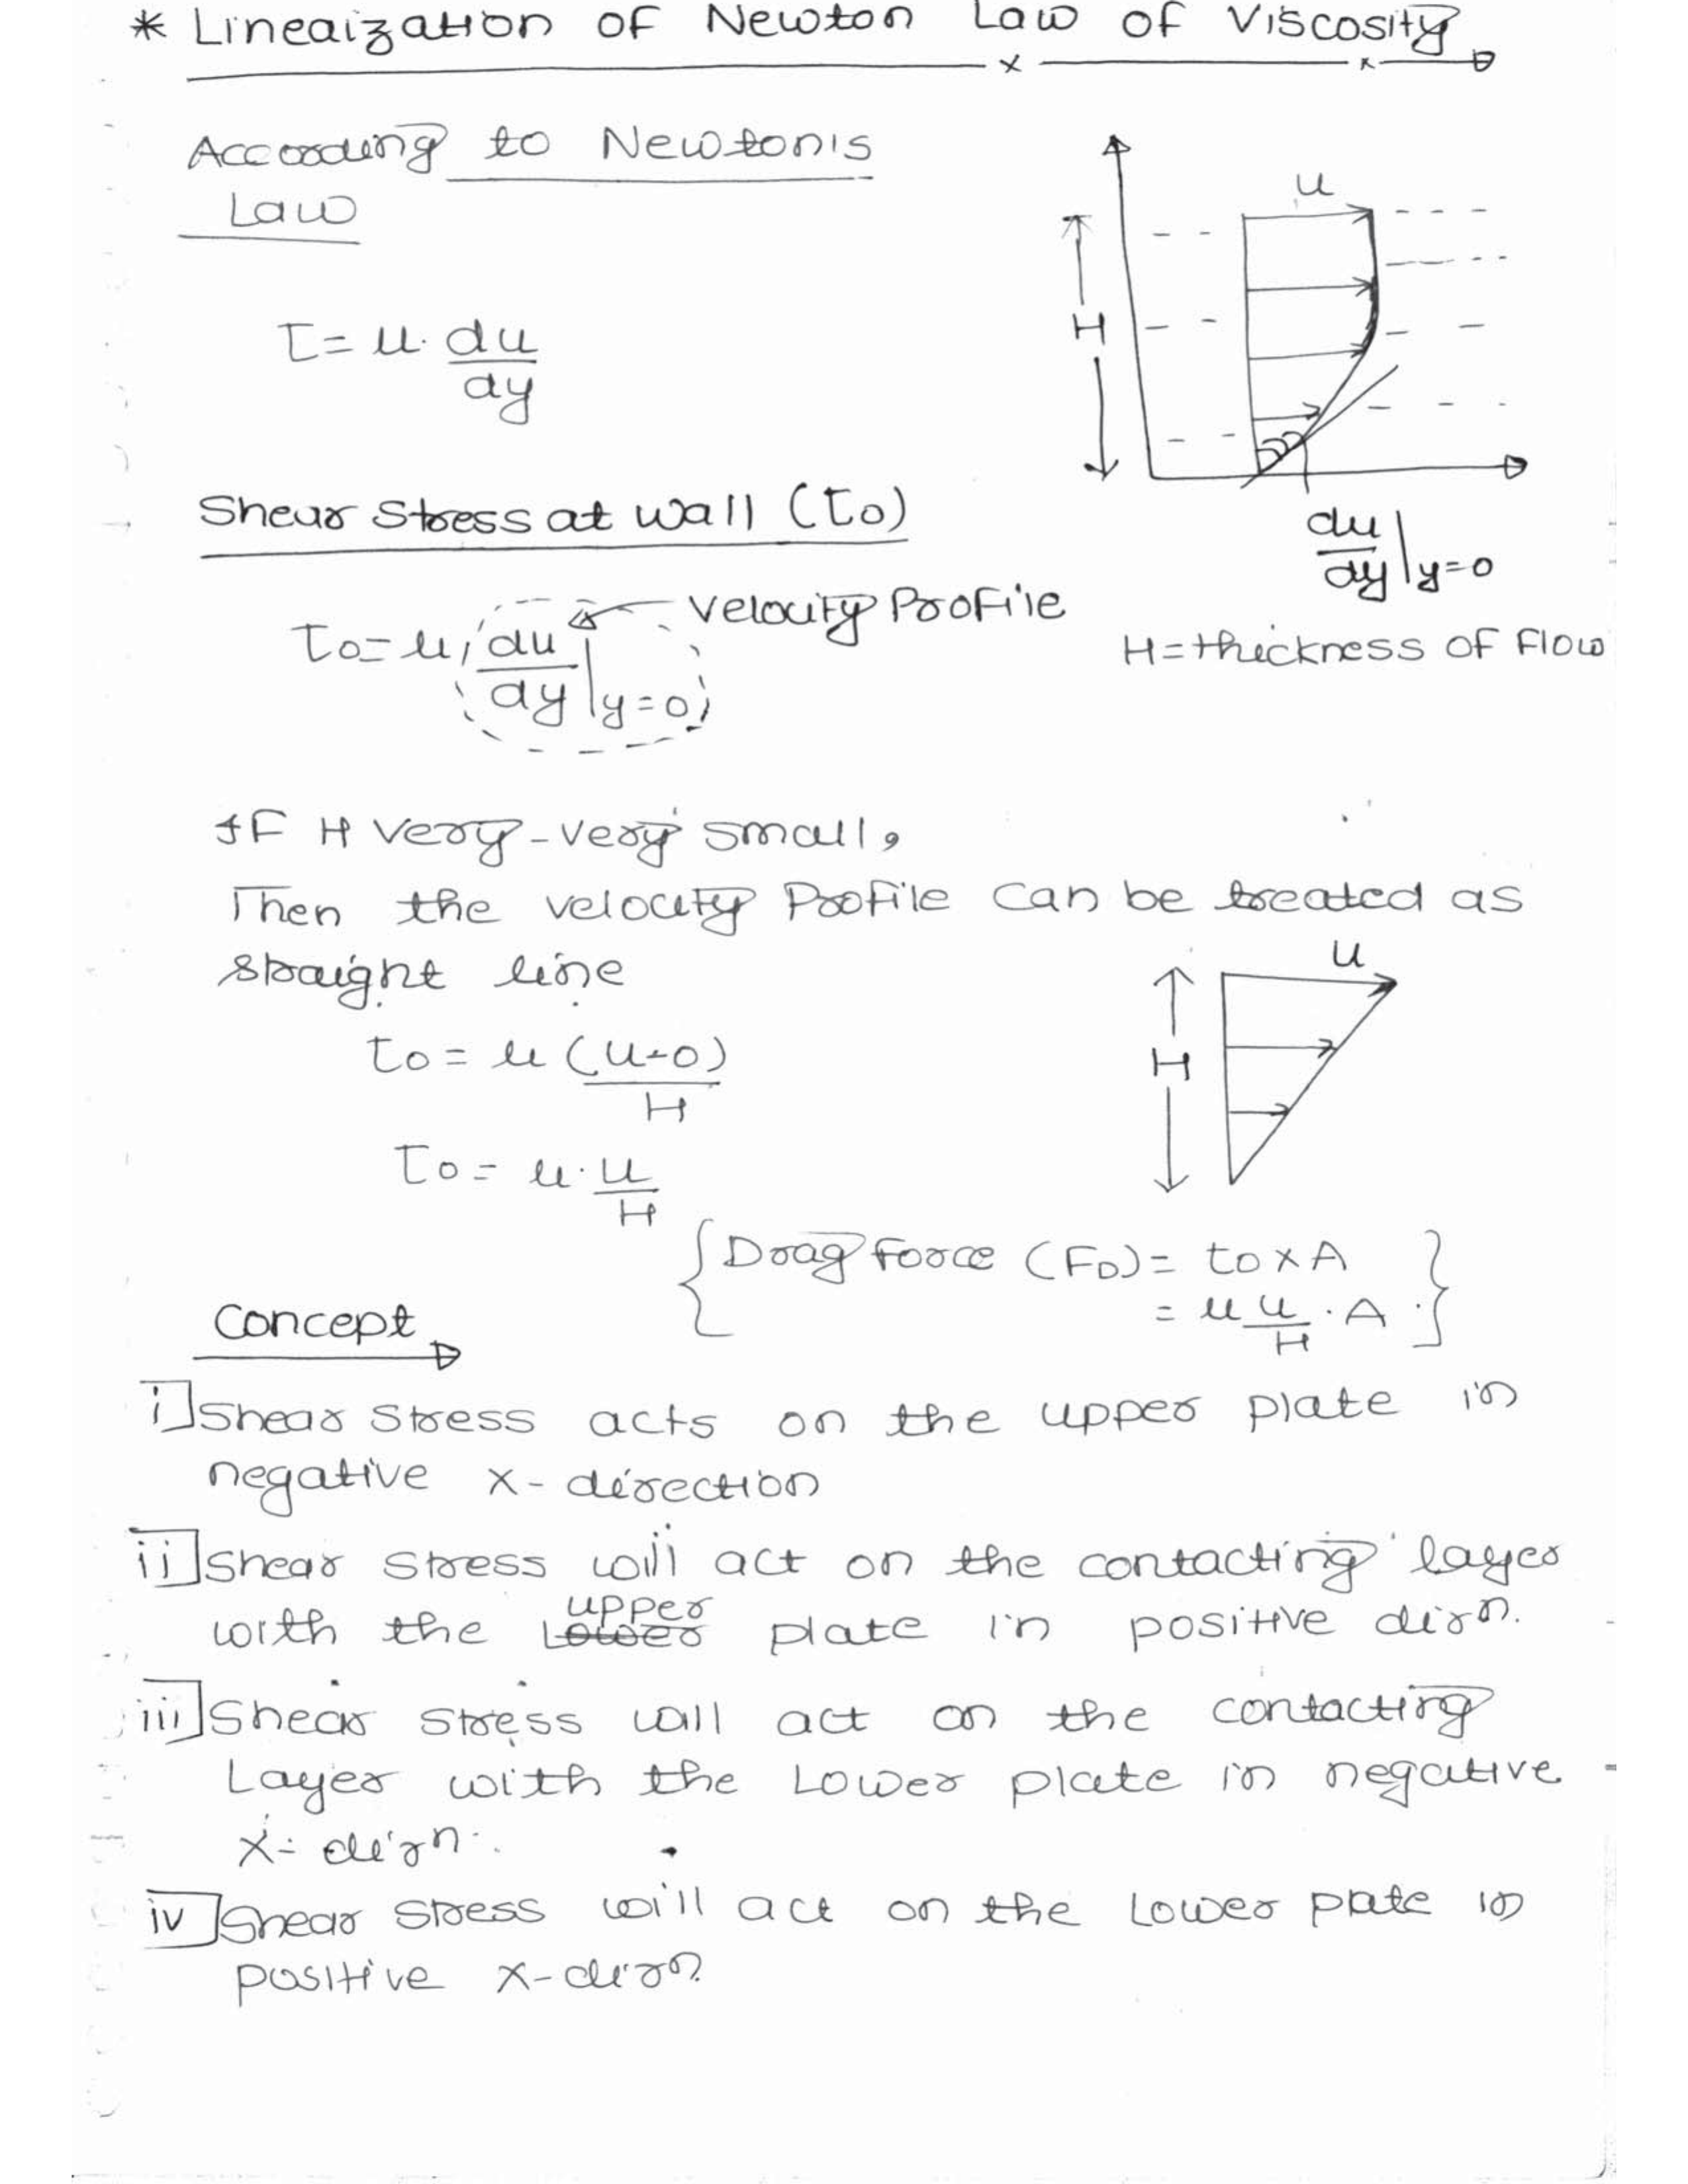 * Lineaization of Newton Law of Viscosity
According to Newton's
Law
u
H
τ = μ. du/dy
Shear Stress at wall (τo)
du/dy |y=0
Velocity Profile
τo = μ du/dy |y=0
H = thickness of Flow
If H very-very small,
Then the velocity Profile can be treated as
straight line
u
H
τo = μ (u-0)/H
τo = μ. u/H
{ Drag Force (FD) = τo x A
= μ u/H . A . }
Concept
i] Shear Stress acts on the upper plate in
negative x-direction
ii] Shear Stress will act on the contacting layer
upper
with the Lower plate in positive dirn.
iii] Shear stress will act on the contacting
Layer with the Lower plate in negative
x- dirn.
iv] Shear Stress will act on the Lower plate in
positive x-dirn